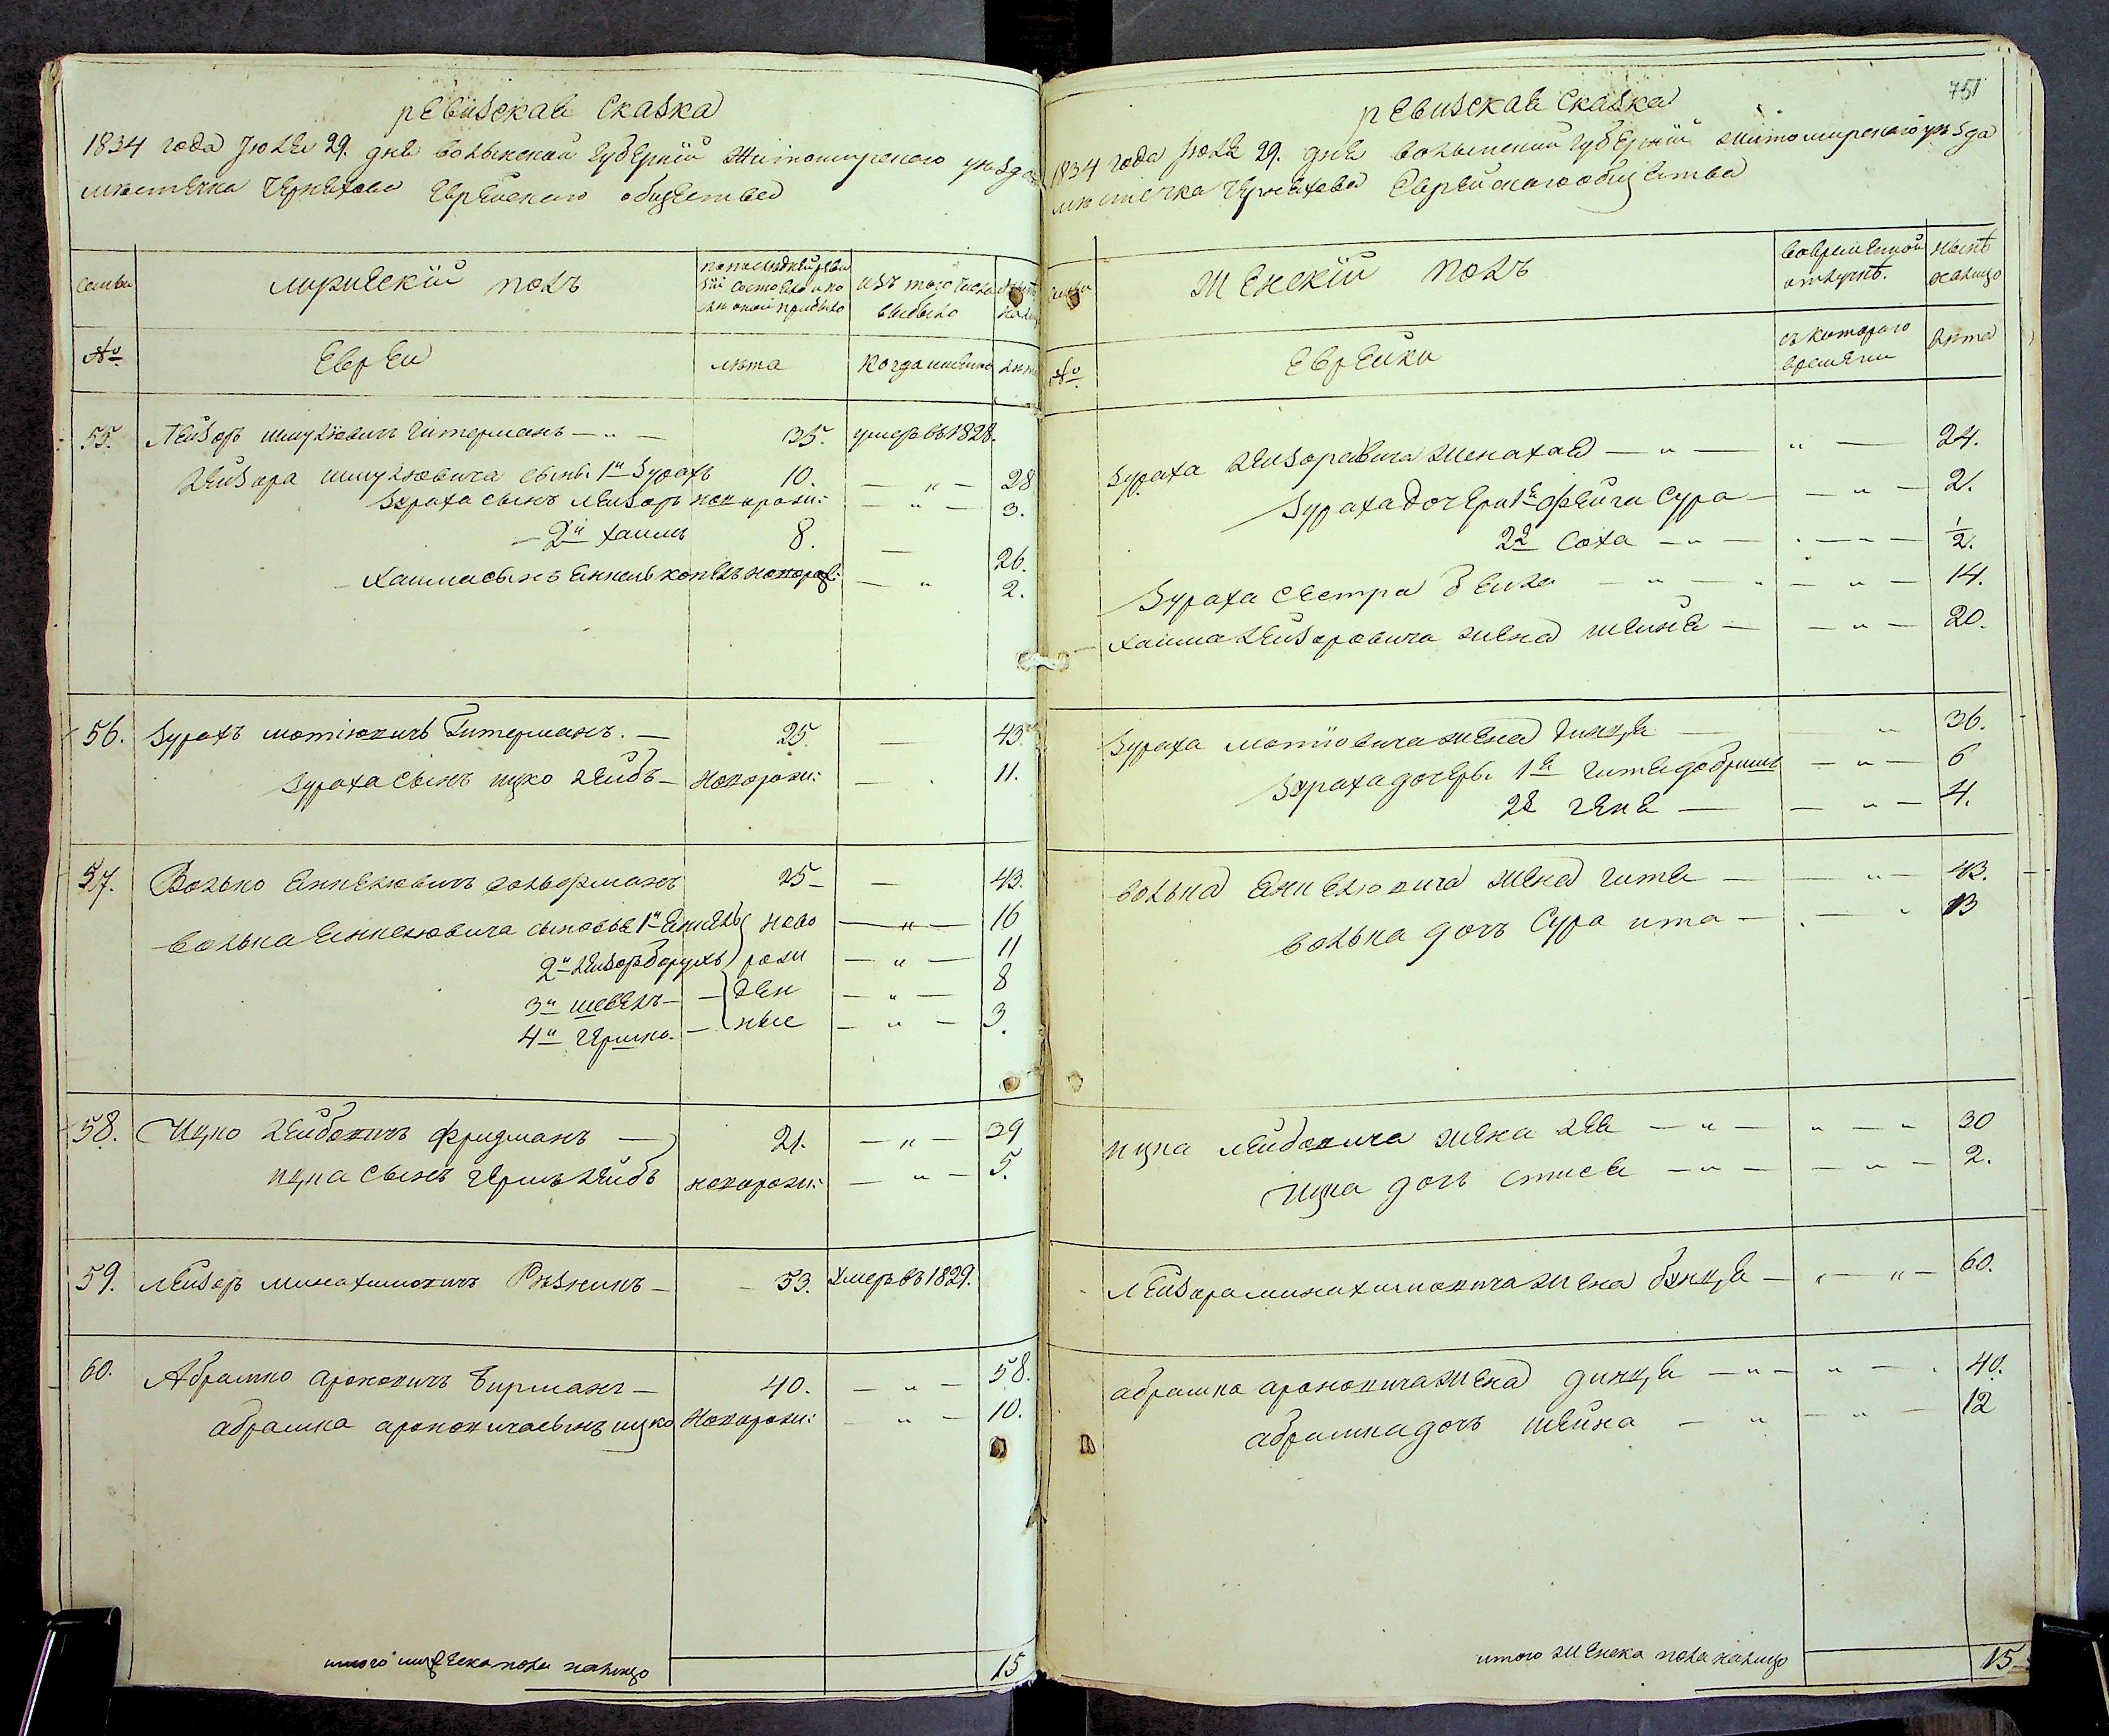 ревизская сказка
1834 года июля 29. дня волынской губернии Житомирского уезда
местечка Черняхова Еврейского общества
семьи мужеский полъ по последней реви зии состояло и по ле оной прибыло изъ того числа выбыло ныне на лицо
№ Евреи лета когда именно лета
55. Лейзоръ шмулювичъ гитерманъ — „ — 35. умеръ въ 1828.
Лейзора шмулювича сынъ 1й Зурахъ 10. — „ — 28
Зураха сынъ Лейзоръ новорожд: — „ — 3.
— 2й хаимъ 8. — 26.
Хаима сынъ Еннель копель новорож: — „ 2.
56. Зурахъ мотіовичъ Гитерманъ. — 25. — 43.
Зураха сынъ ицко лейбъ — новорож: — . 11.
57. Волько Еннелювичъ гольфманъ 25 — — 43.
волька Еннелювича сыновья 1й Еннель ново — „ — 16
2й Лейзоръ борухъ рож — „ — 11
3й шевель — ден — „ — 8
4й гершко. — ные — „ — 3.
58. Ицко лейбовичъ фридманъ — 21. — „ — 39
ицка сынъ гершъ лейбъ новорож: — „ — 5.
59. Лейзоръ минахимовичъ Резникъ — — 53. умеръ въ 1829.
60. Абрамко ароновичъ бирманъ — 40. — „ — 58.
абрамка ароновича сынъ ицко новорож: — „ — 10.
итого мужеска пола налицо 15
751
ревизская сказка
1834 года июля 29. дня волынской губернии житомирского уезда
местечка Черняхова Еврейского общества
семьи Женский полъ во временной отлучке. ныне налицо
№ Еврейки съ которого времени лета
Зураха лейзоровича жена хая — „ — „ — 24.
Зураха дочери 1я Фейга Сура — — „ — 2.
2я Соха — „ — . — „ — 1/2.
Зураха сестра бейла — „ — „ — „ — 14.
хаима лейзоровича жена шейня — — „ — 20.
Зураха мотіовича жена динця — „ 36.
Зураха дочерь 1я гитля добришъ — „ — 6
2я геня — — „ — 4.
волька Еннелювича жена гитля — — „ — 43.
волька дочь Сура ита — . — „ 13
ицка лейбовича жена лея — „ — „ — „ 30
ицка дочь стися — „ — — „ — 2.
Лейзора минахимовича жена бунця — „ — „ — 60.
абрамка ароновича жена динця — „ — „ — . 40.
абрамка дочь шейна — „ — „ — 12
итого женска пола налицо 15